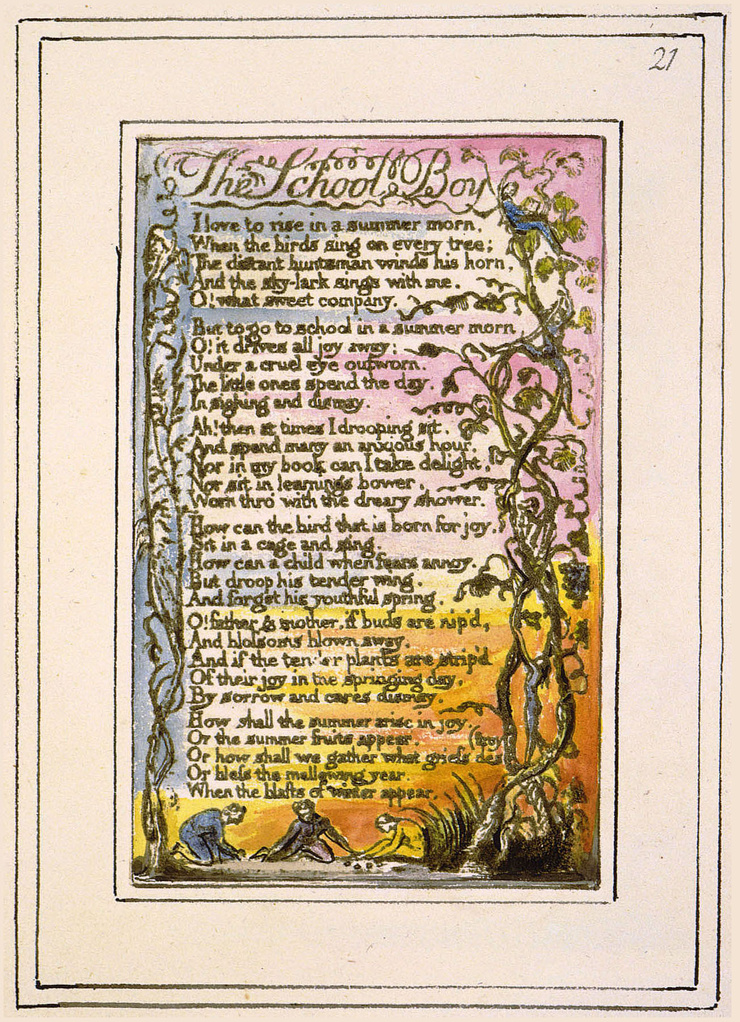 21
The School Boy
I love to rise in a summer morn,
When the birds sing on every tree;
The distant huntsman winds his horn,
And the sky-lark sings with me.
O! what sweet company.
But to go to school in a summer morn,
O! it drives all joy away;
Under a cruel eye outworn.
The little ones spend the day,
In sighing and dismay.
Ah! then at times I drooping sit,
And spend many an anxious hour.
Nor in my book can I take delight,
Nor sit in learnings bower,
Worn thro' with the dreary shower.
How can the bird that is born for joy,
Sit in a cage and sing.
How can a child when fears annoy.
But droop his tender wing.
And forget his youthful spring.
O! father & mother, if buds are nip'd,
And bloſsoms blown away,
And if the tender plants are strip'd
Of their joy in the springing day,
By sorrow and cares dismay,
How shall the summer arise in joy.
Or the summer fruits appear. (troy
Or how shall we gather what griefs des
Or bleſs the mellowing year.
When the blasts of winter appear.